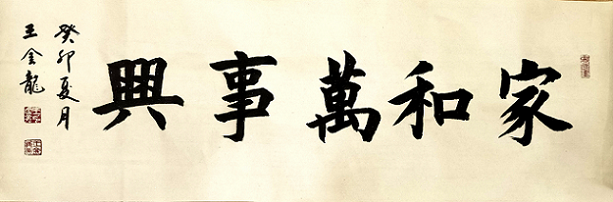 家和萬事興
癸卯夏月
王金龍